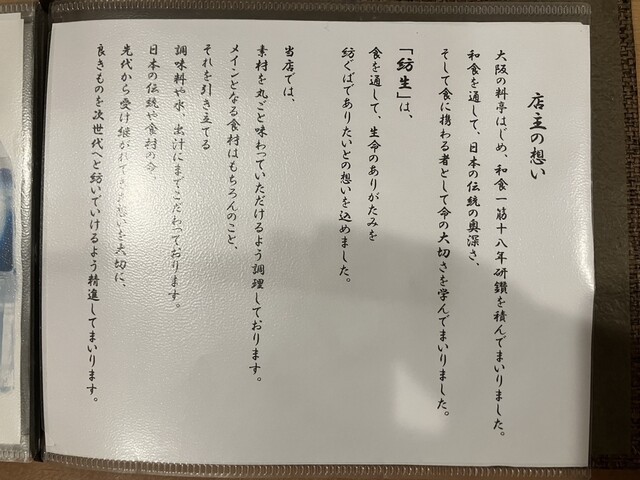 店主の想い
大阪の料亭はじめ、和食一筋十八年研鑽を積んでまいりました。
和食を通して、日本の伝統の奥深さ、
そして食に携わる者として命の大切さを学んでまいりました。
「紡生」は、
食を通して、生命のありがたみを
紡ぐばでありたいとの想いを込めました。
当店では、
素材を丸ごと味わっていただけるよう調理しております。
メインとなる食材はもちろんのこと、
それを引き立てる
調味料や水、出汁にまでこだわっております。
日本の伝統や食材の命、
先代から受け継がれてきた想いを大切に、
良きものを次世代へと紡いでいけるよう精進してまいります。